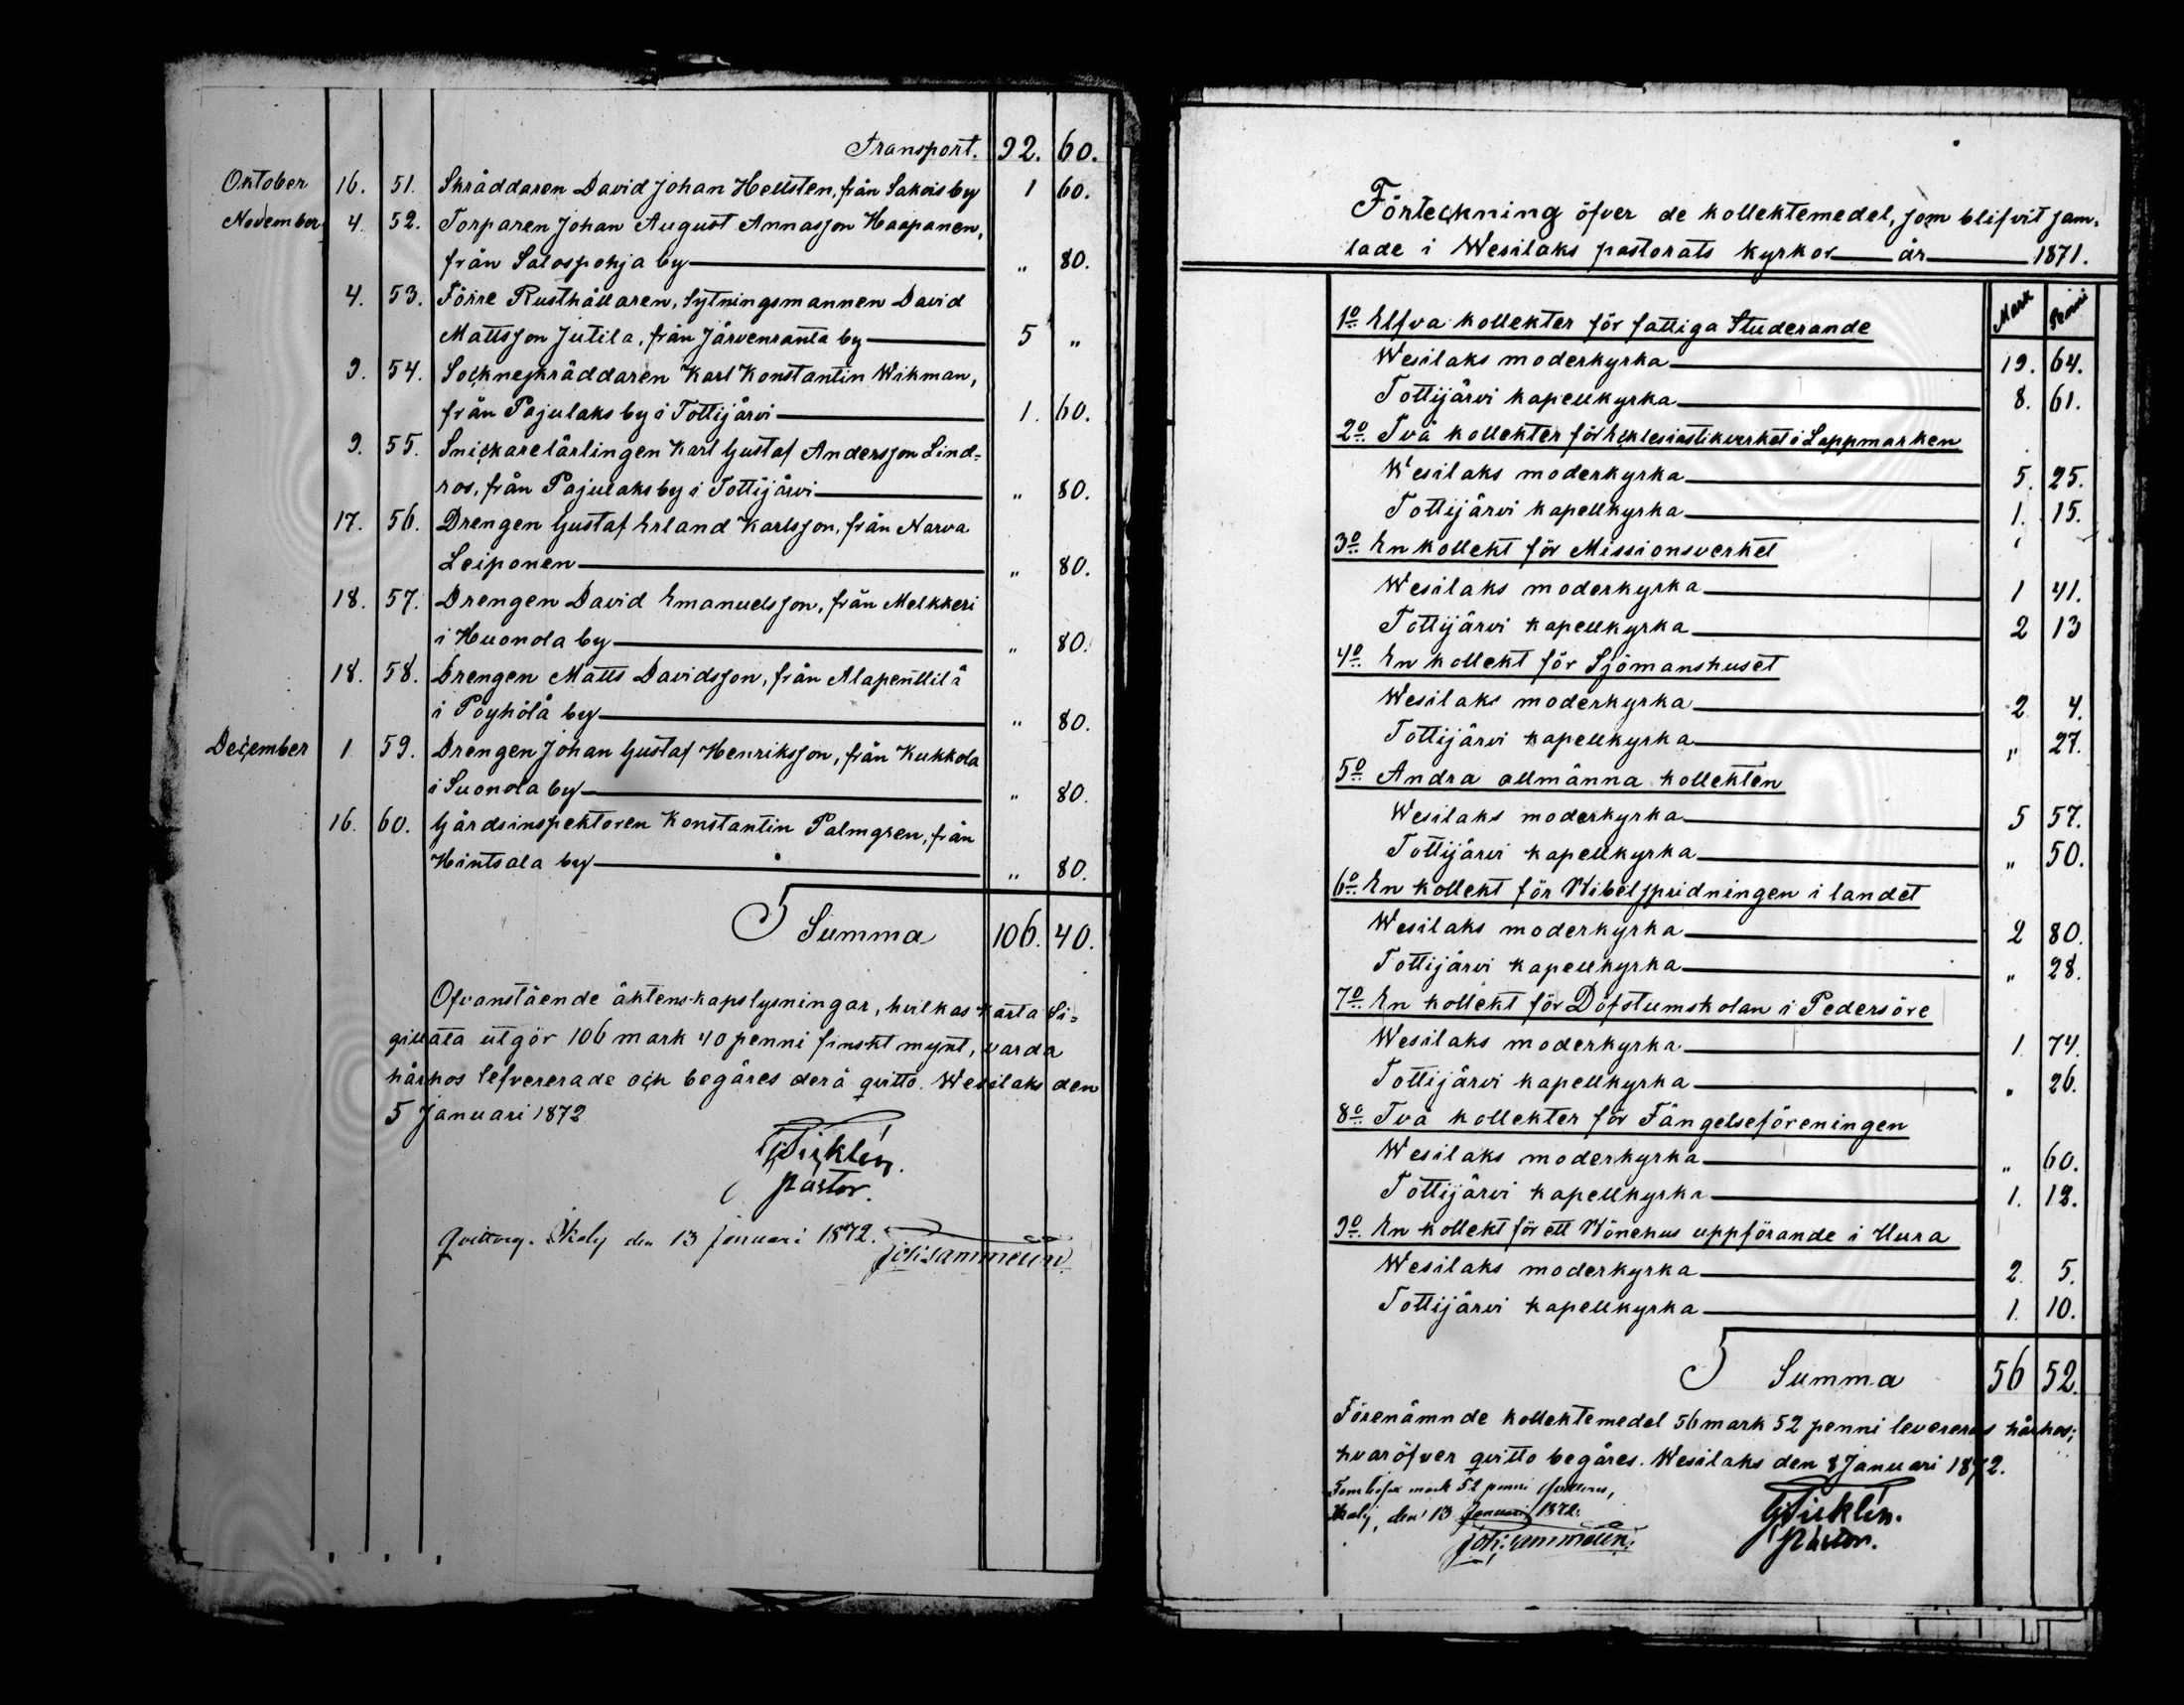 Transport. 92. 60.
Oktober 16. 51. Skräddaren David Johan Hellsten, från Sakois by 1 60.
November 4. 52. Torparen Johan August Annasson Haapanen,
från Salospohja by „ 80.
4. 53. Förre Rusthållaren, Sytningsmannen David
Mattsson Jutila, från Järvenranta by 5 „
9. 54. Sockneskräddaren Karl Konstantin Wikman,
från Pajulaks by i Tottijärvi 1. 60.
9. 55. Snickarelärlingen Karl Gustaf Andersson Lind=
ros, från Pajulaks by i Tottijärvi „ 80.
17. 56. Drengen Gustaf Erland Karlsson, från Narva
Leiponen „ 80.
18. 57. Drengen David Emanuelsson, från Melkkeri
i Huonola by „ 80.
18. 58. Drengen Matts Davidsson, från Alapenttilä
i Pöyhölä by „ 80.
December 1 59. Drengen Johan Gustaf Henriksson, från Kukkola
i Suonola by „ 80.
16. 60. Gårdsinspektoren Konstantin Palmgren, från
Hintsala by „ 80.
Summa 106. 40.
Ofvanstående äktenskapslysningar, hvilkas Karta Si=
gillata utgör 106 mark 40 penni finskt mynt, varda
härhos lefvererade och begäres derå qvitto. Wesilaks den
5 Januari 1872
Pastor.
den 13 Januari 1872.
Förteckning öfver de kollektemedel, som blifvit sam-
lade i Wesilaks pastorats kyrkor år 1871.
Mark Penni
1o Elfva kollekter för fattiga Studerande
Wesilaks moderkyrka 19. 64.
Tottijärvi kapellkyrka 8. 61.
2o Två kollekter för Ecklesiastikverket i Lappmarken
Wesilaks moderkyrka 5. 25.
Tottijärvi kapellkyrka 1. 15.
3o En kollekt för Missionsverket
Wesilaks moderkyrka 1 41.
Tottijärvi kapellkyrka 2 13
4o En kollekt för Sjömanshuset
Wesilaks moderkyrka 2 4.
Tottijärvi kapellkyrka „ 27.
5o Andra allmänna kollekten
Wesilaks moderkyrka 5 57.
Tottijärvi kapellkyrka „ 50.
6o En kollekt för Bibelspridningen i landet
Wesilaks moderkyrka 2 80.
Tottijärvi kapellkyrka „ 28.
7o En kollekt för Döfstumskolan i Pedersöre
Wesilaks moderkyrka 1 74.
Tottijärvi kapellkyrka „ 26.
8o Två kollekter för Fängelseföreningen
Wesilaks moderkyrka „ 60.
Tottijärvi kapellkyrka 1. 12.
9o En kollekt för ett Bönehus uppförande i Uura
Wesilaks moderkyrka 2. 5.
Tottijärvi kapellkyrka 1. 10.
Summa 56 52.
Förenämnde kollektemedel 56 mark 52 penni levereras härhos;
hvaröfver qvitto begäres. Wesilaks den 8 Januari 1872.
mark 52 penni
den 13 Januari 1872.
Pastor.